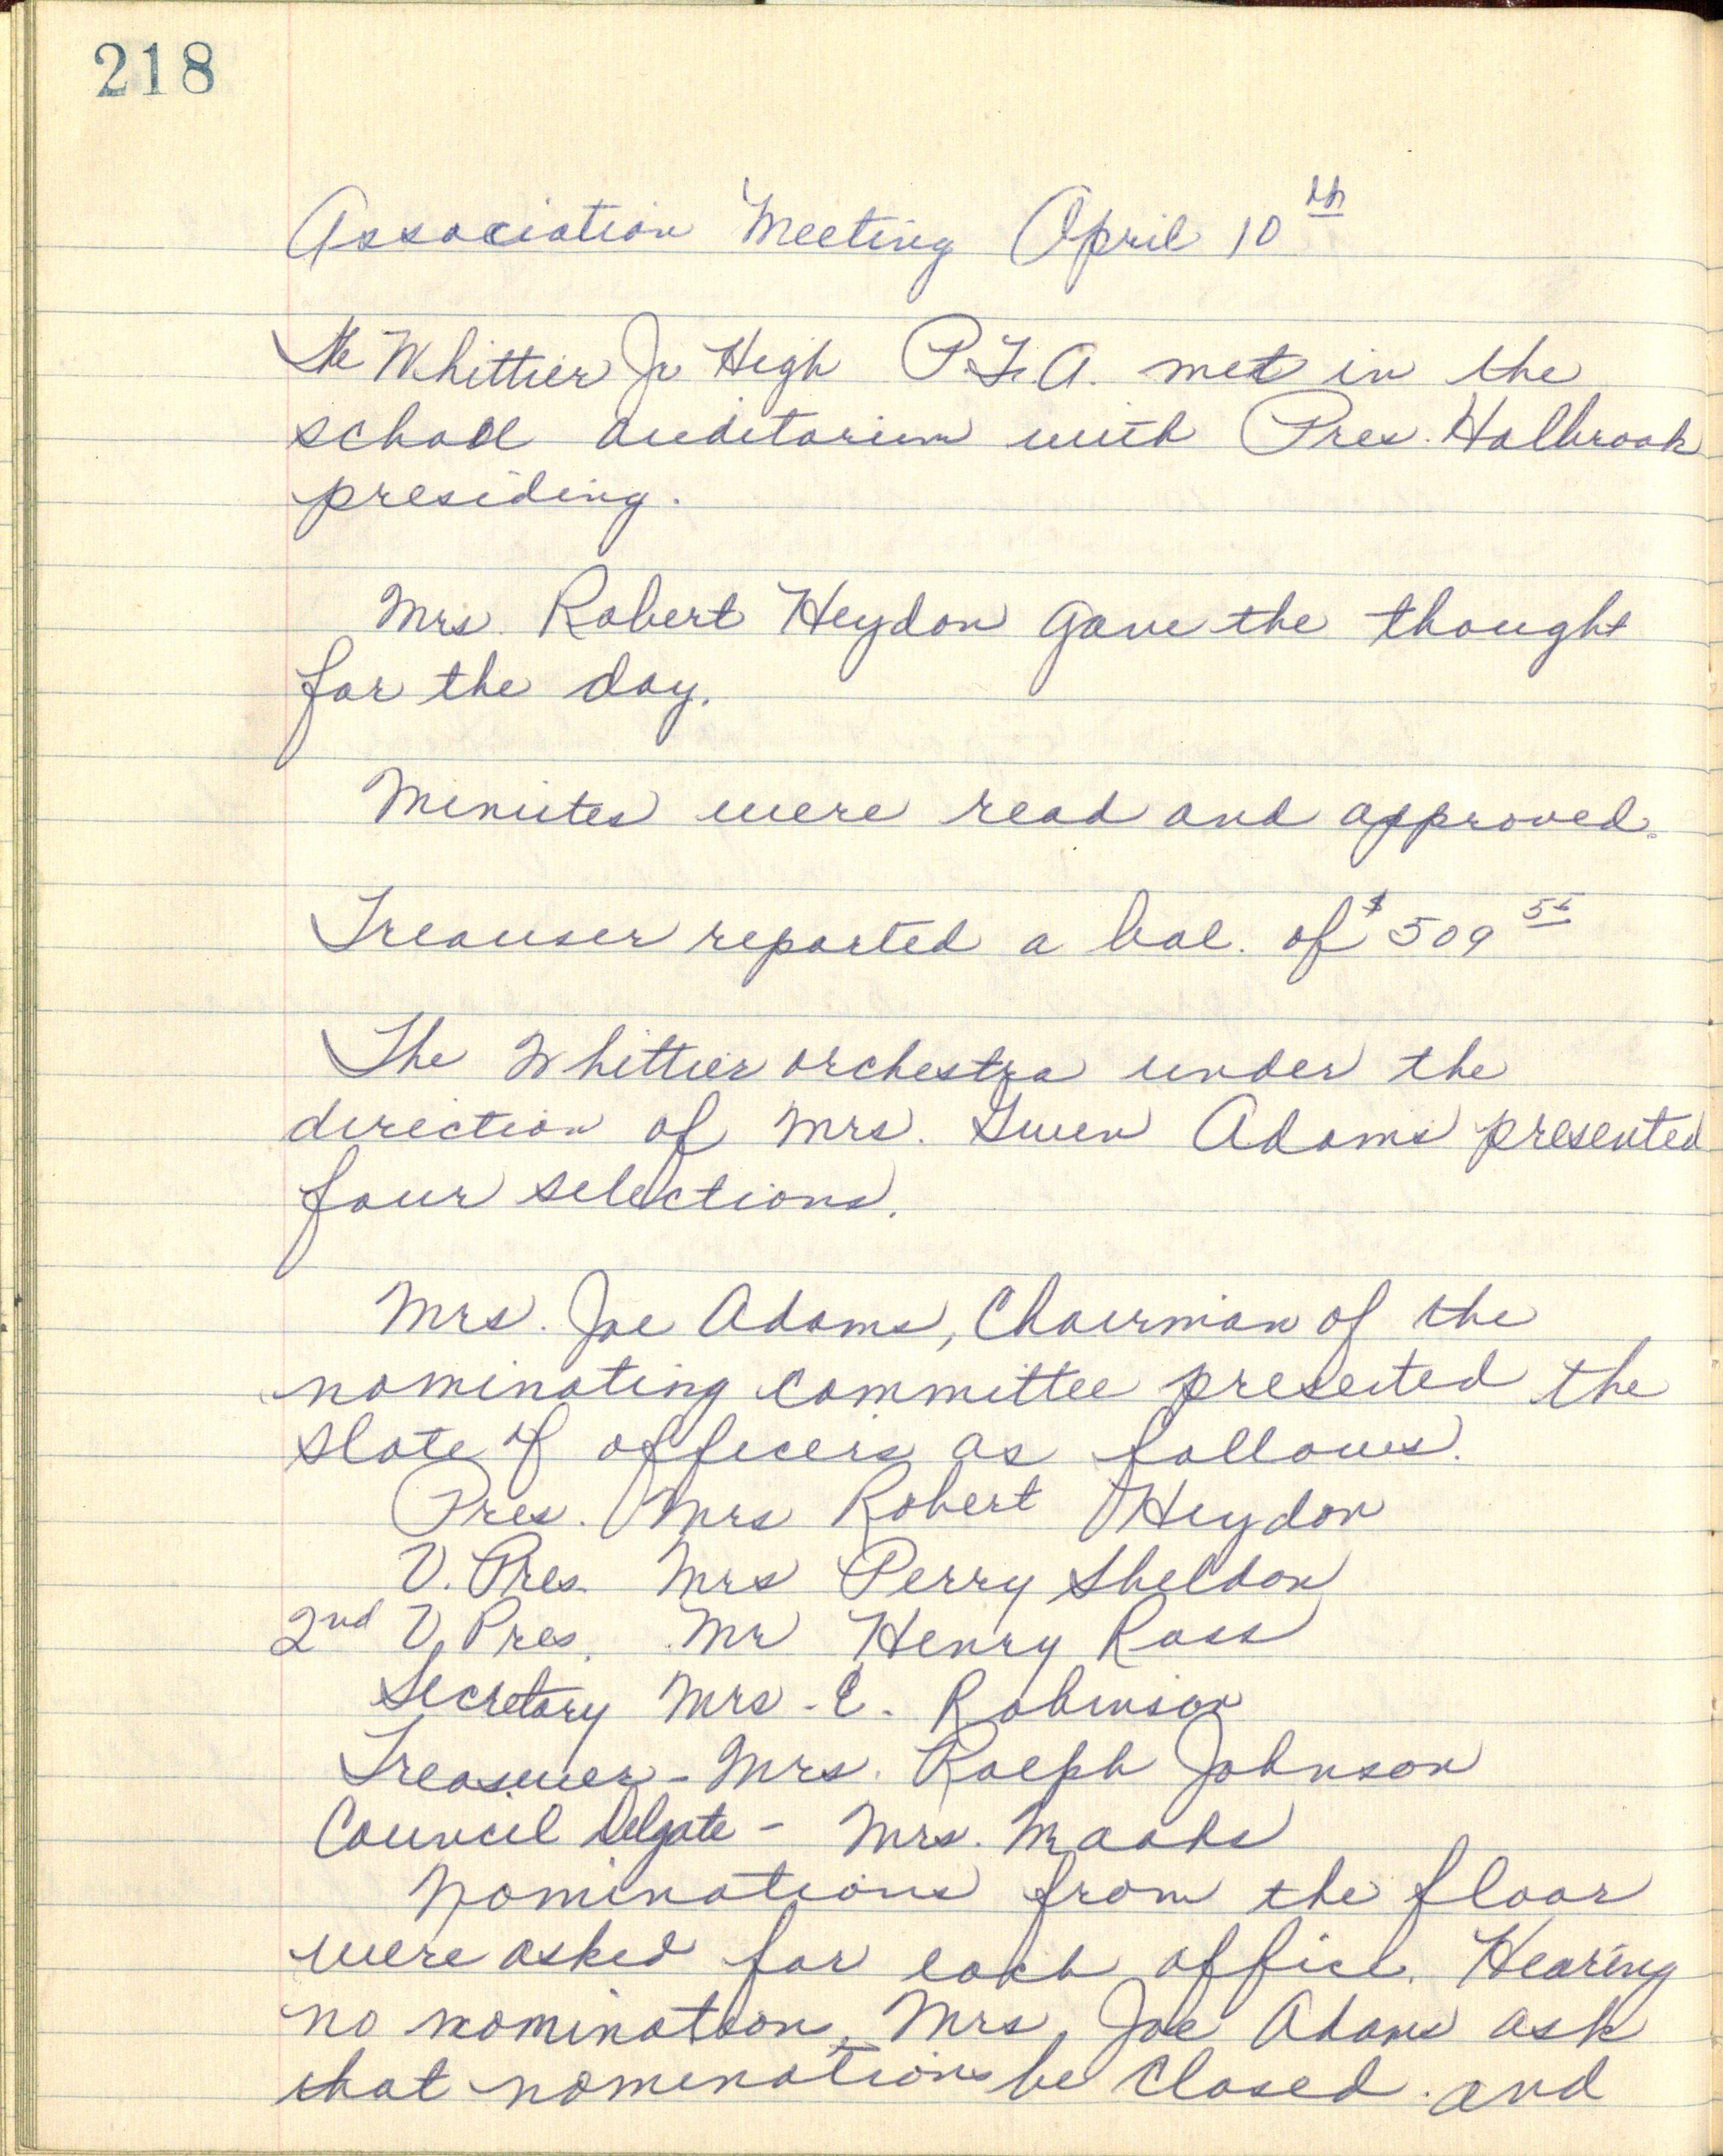 218
Association Meeting April 10th
The Whittier Jr High P.T.A. met in the
school auditorium with Pres. Holbrook
presiding.
Mrs. Robert Heydon gave the thought
for the day.
Minutes were read and approved.
Treauser reported a bal. of $509
The Whittier orchestra under the
direction of Mrs. Gwen Adams presented
four selections.
Mrs. Joe Adams, Chairman of the
nominating committee presented the
slate of officers as follows.
Pres. Mrs Robert Heydon
V. Pres. Mrs Perry Sheldon
2nd V. Pres. Mr Henry Ross
Secretary Mrs. E. Robinson
Treasurer - Mrs. Ralph Johnson
Council Delgate - Mrs.
Nominations from the floor
were asked for each office. Hearing
no nomination, Mrs. Joe Adams ask
that nominations be closed. and